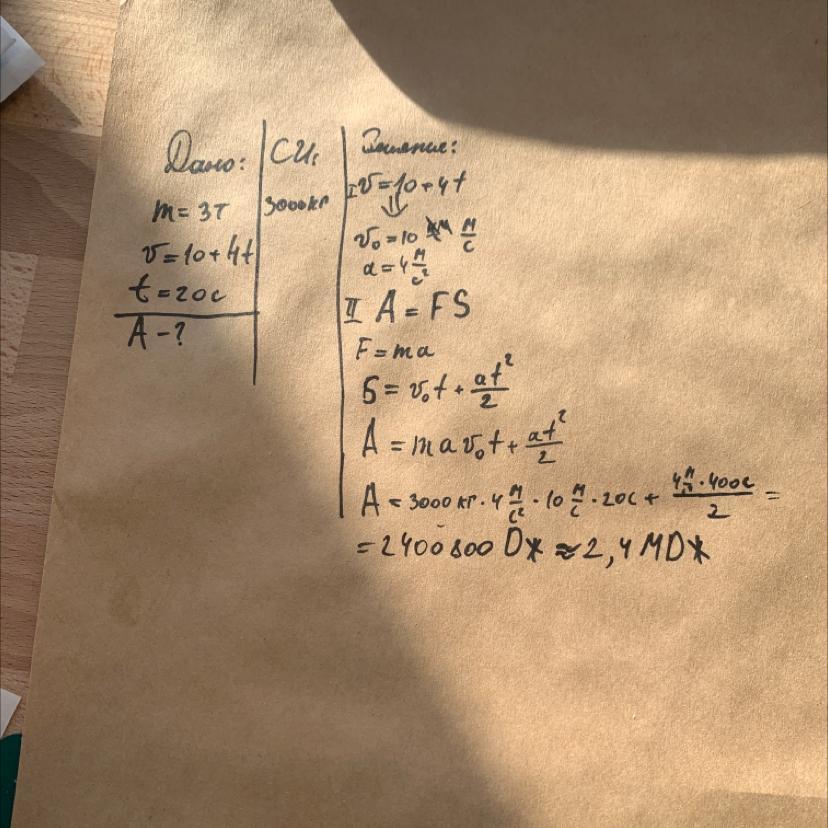 Дано:
m = 3т
υ = 10 + 4t
t = 20с
A - ?
СИ:
3000кг
Решение:
I υ = 10 + 4t
⇓
υ₀ = 10 м/с
a = 4 м/с²
II A = FS
F = ma
S = υ₀t + at²/2
A = maυ₀t + at²/2
A = 3000 кг · 4 м/с² · 10 м/с · 20с + 4 м/с² · 400с/2 =
= 2400800 Dж ≈ 2,4 МDж